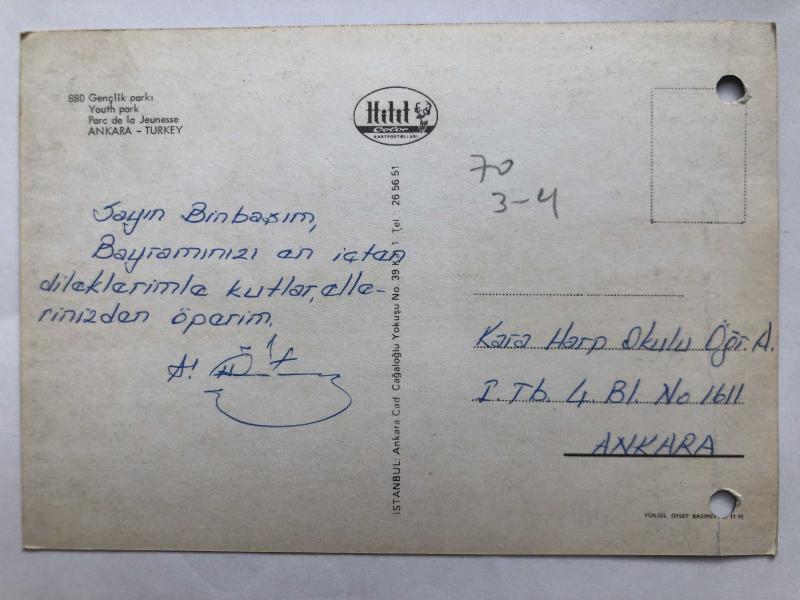 880 Gençlik parkı
Youth park
Parc de la Jeunesse
ANKARA - TURKEY
Hitit
Color
KARTPOSTALLARI
70
3-4
Sayın Binbaşım,
Bayramınızı en içten
dileklerimle kutlar, elle-
rinizden öperim.
İSTANBUL: Ankara Cad Cağaloğlu Yokuşu No. 39 K 1 Tel : 26 56 51
Kara Harp Okulu Öğr. A.
I. Tb. 4. Bl. No 1611
ANKARA
YÜKSEL OFSET BASIMEVİ